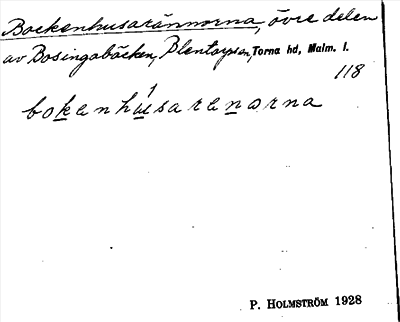 Bockenhusarännorna, övre delen
av Bosingabäcken, Blentarps sn, Torna hd, Malm. l.
118
bokenhúsarenorna
P. HOLMSTRÖM 1928